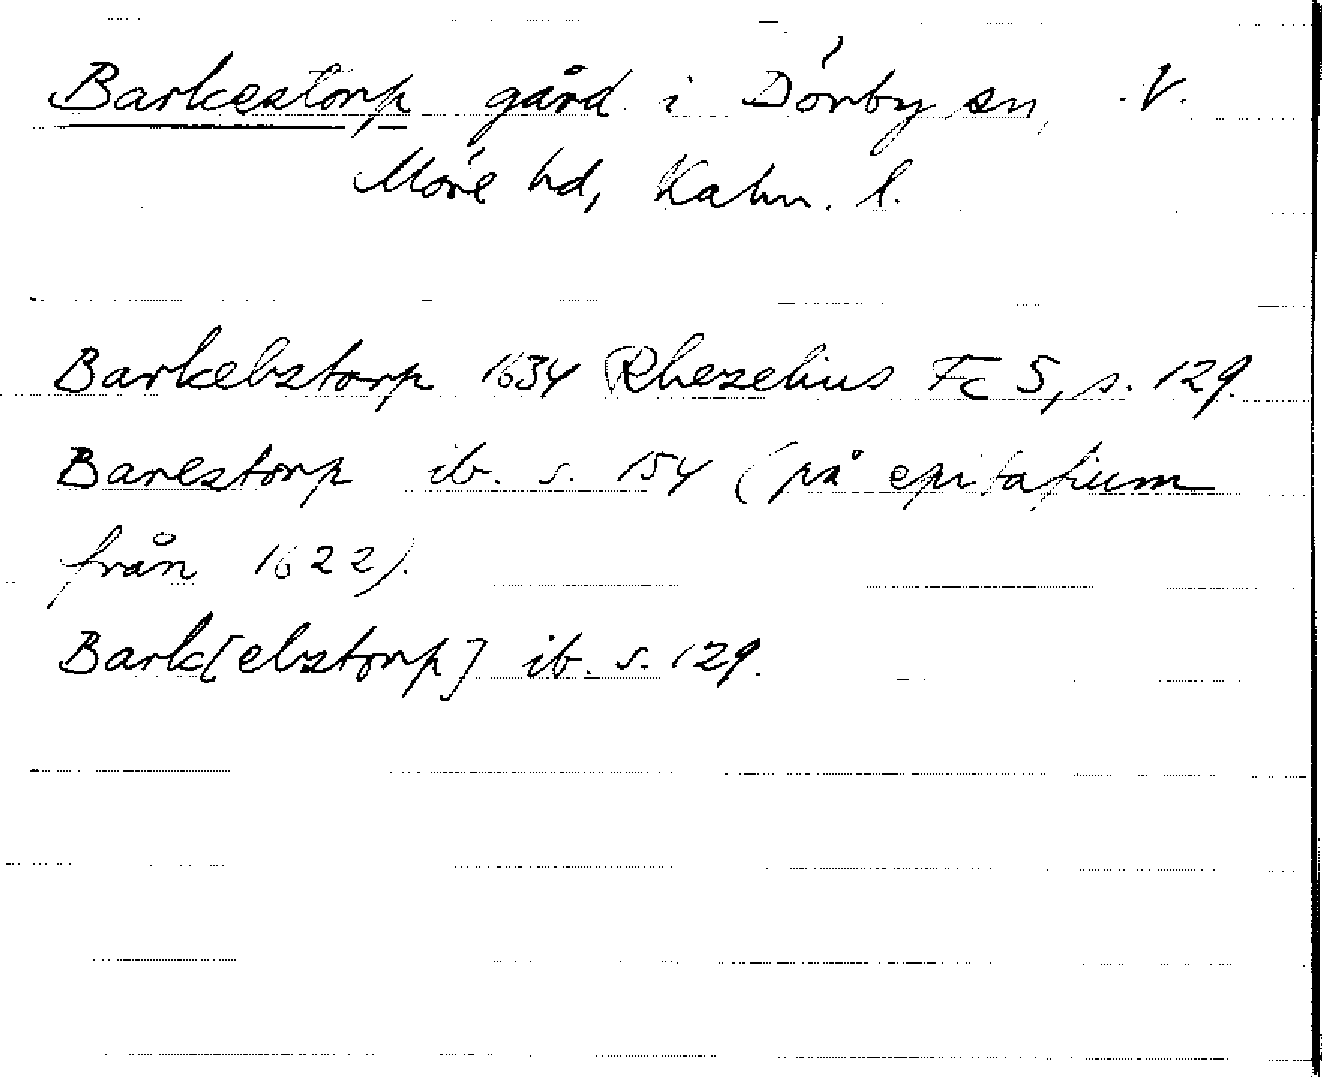 Barkestorp gård i Dörby sn, V.
Möre hd, Kalm. l.
Barkebztorp 1634 Rhezelius Fc 5, s. 129.
Barestorp ib. s. 154 (på epitafium
från 1622).
Bark[ebztorp] ib. s. 129.